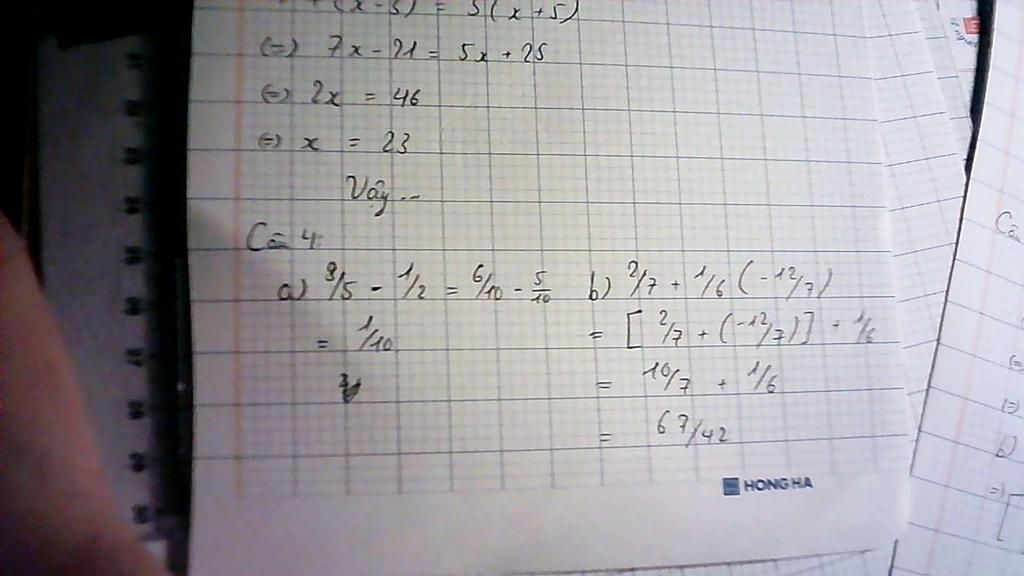 (x-3) = 5(x+5)
(=) 7x - 21 = 5x + 25
(=) 2x = 46
(=) x = 23
Vậy...
Câu 4:
a) 3/5 - 1/2 = 6/10 - 5/10
= 1/10
b) 2/7 + 1/6 (-12/7)
= [2/7 + (-12/7)] + 1/6
= 10/7 + 1/6
= 67/42
HONG HA